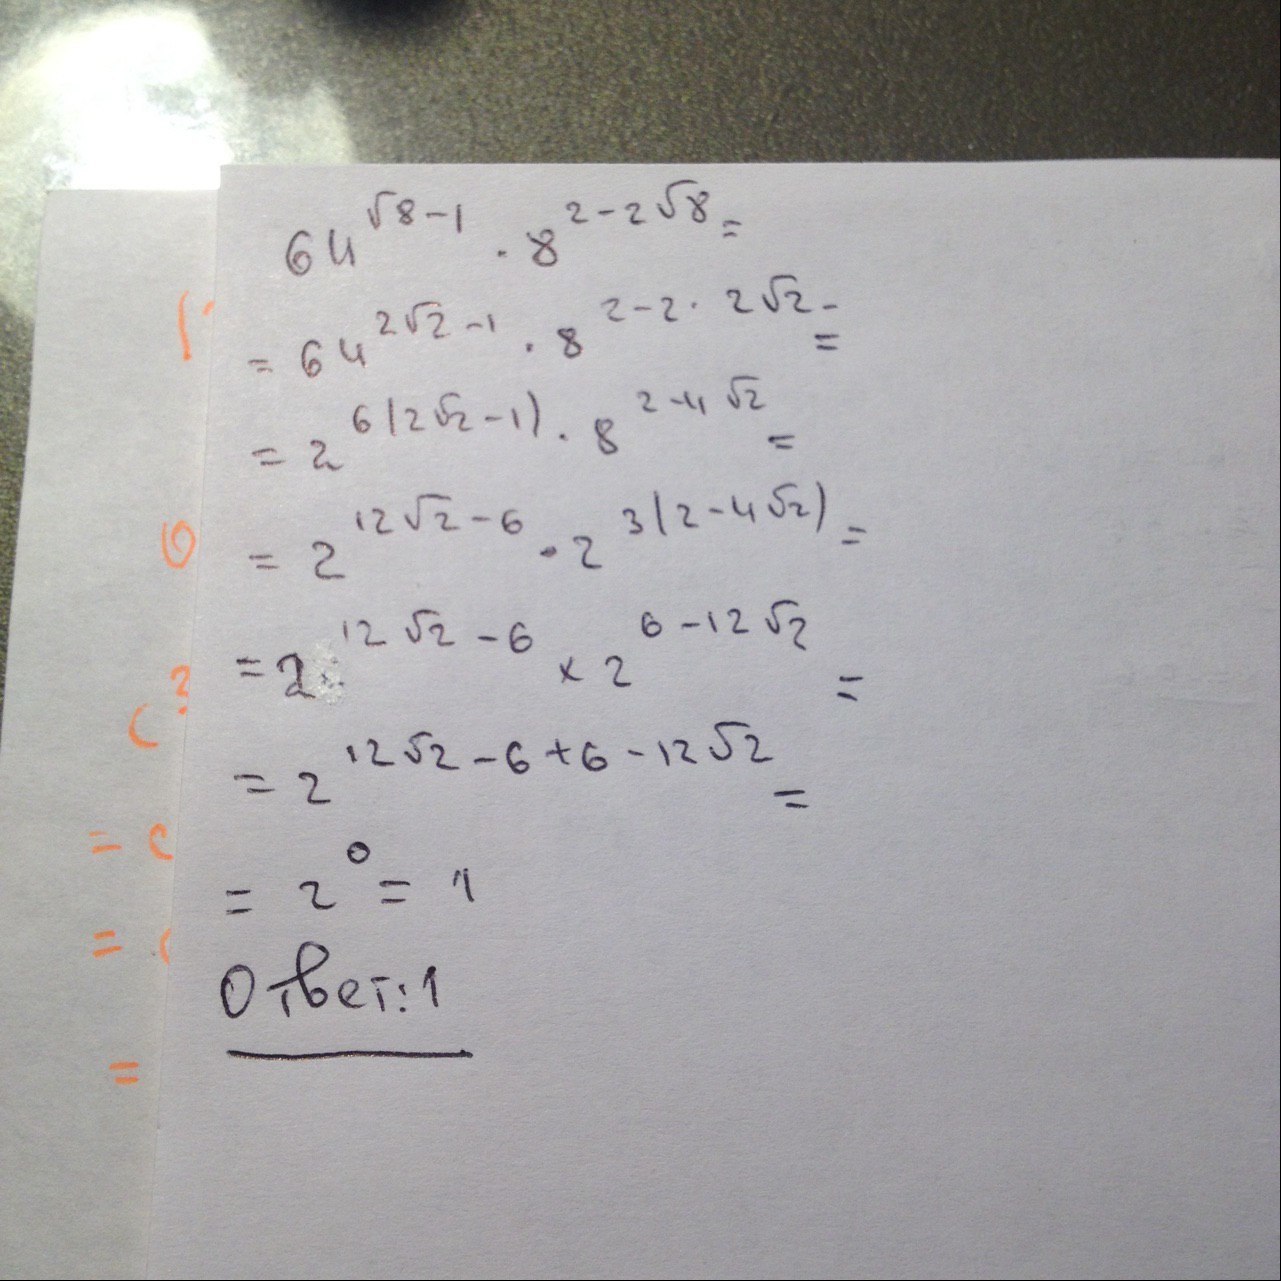 64^(√8-1) · 8^(2-2√8) =
= 64^(2√2-1) · 8^(2-2·2√2-) =
= 2^(6(2√2-1)) · 8^(2-4√2) =
= 2^(12√2-6) · 2^(3(2-4√2)) =
= 2^(12√2-6) × 2^(6-12√2) =
= 2^(12√2-6+6-12√2) =
= 2^0 = 1
Ответ: 1